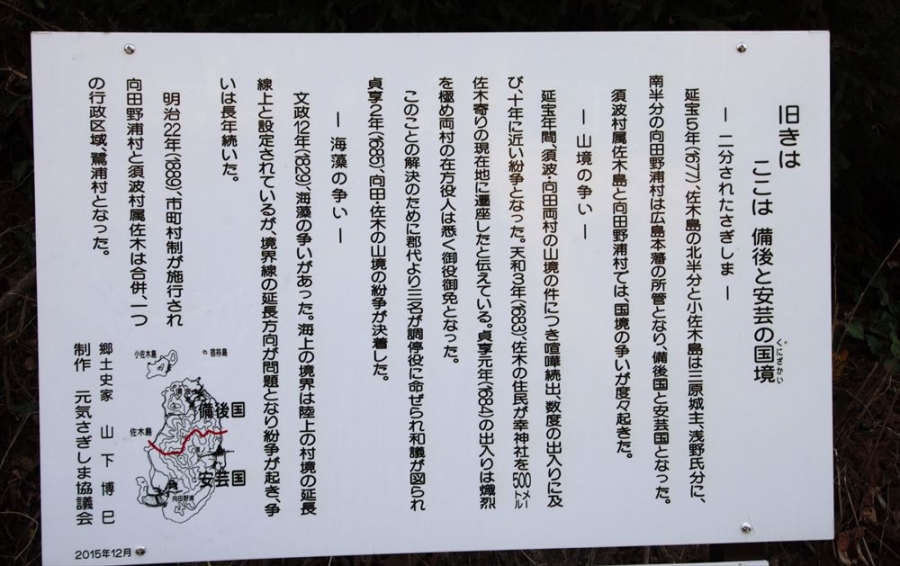 旧きは
ここは 備後と安芸の国境
くにざかい
― 二分されたさぎしま ―
延宝5年(1677)、佐木島の北半分と小佐木島は三原城主、浅野氏分に、
南半分の向田野浦村は広島本藩の所管となり、備後国と安芸国となった。
須波村属佐木島と向田野浦村では、国境の争いが度々起きた。
― 山境の争い ―
延宝年間、須波・向田両村の山境の件につき喧嘩続出、数度の出入りに及
び、十年に近い紛争となった。天和3年(1683)、佐木の住民が幸神社を500メートル
佐木寄りの現在地に遷座したと伝えている。貞享元年(1684)の出入りは熾烈
を極め両村の在方役人は悉く御役御免となった。
このことの解決のために郡代より三名が調停役に命ぜられ和議が図られ
貞享2年(1685)、向田・佐木の山境の紛争が決着した。
― 海藻の争い ―
文政12年(1829)、海藻の争いがあった。海上の境界は陸上の村境の延長
線上と設定されているが、境界線の延長方向が問題となり紛争が起き、争
いは長年続いた。
明治22年(1889)、市町村制が施行され
向田野浦村と須波村属佐木は合併、一つ
の行政区域、鷺浦村となった。
小佐木島
宿祢島
備後国
佐木島
安芸国
向田野浦
郷土史家 山下博巳
制作 元気さぎしま協議会
2015年12月